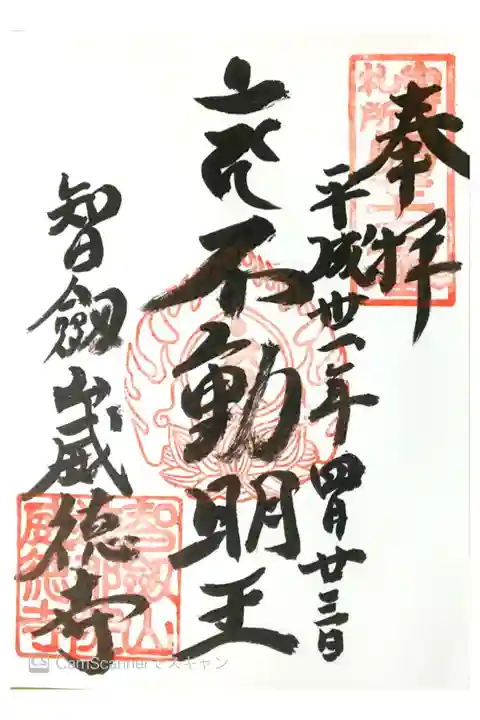 奉拝
平成卅一年四月廿三日
不動明王
智劔山威徳寺
札所
智劔山
威徳寺
CamScannerでスキャン